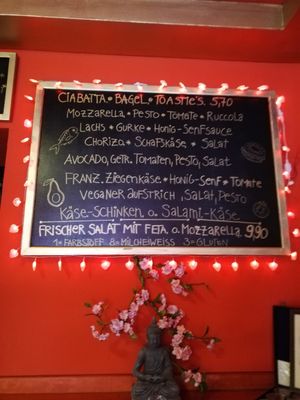 CIABATTA • BAGEL • TOASTIE'S 5,70
MOZZARELLA • PESTO • TOMATE • RUCCOLA
LACHS • GURKE • HONIG-SENFSAUCE
CHORIZO • SCHAFSKÄSE • SALAT
AVOCADO, GETR. TOMATEN, PESTO, SALAT
FRANZ. ZIEGENKÄSE • HONIG-SENF • TOMATE
VEGANER AUFSTRICH, SALAT, PESTO
KÄSE-SCHINKEN O. SALAMI-KÄSE
FRISCHER SALAT MIT FETA O. MOZZARELLA 9,90
1 = FARBSTOFF 8 = MILCHEIWEISS 3 = GLUTEN